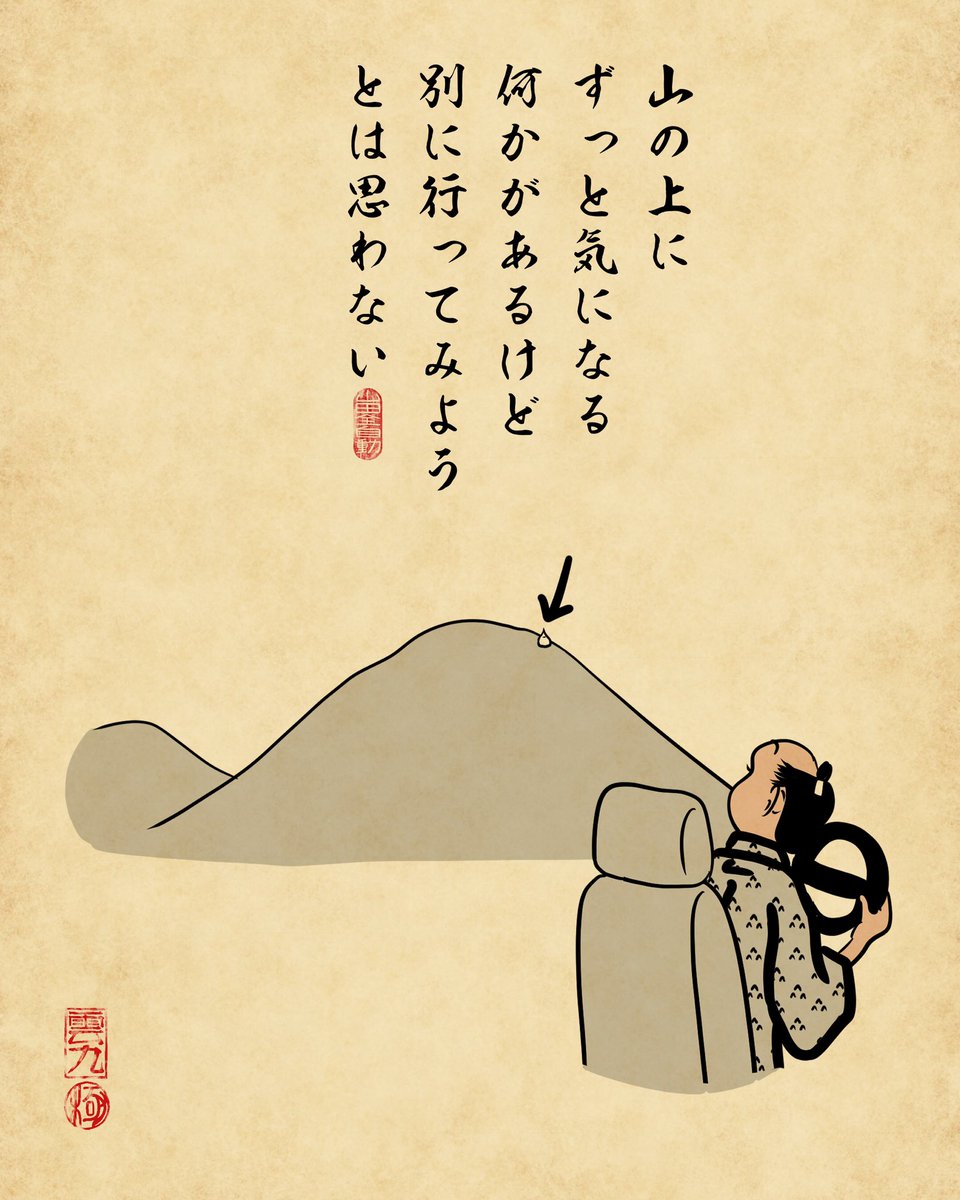 山の上に
ずっと気になる
何かがあるけど
別に行ってみよう
とは思わない